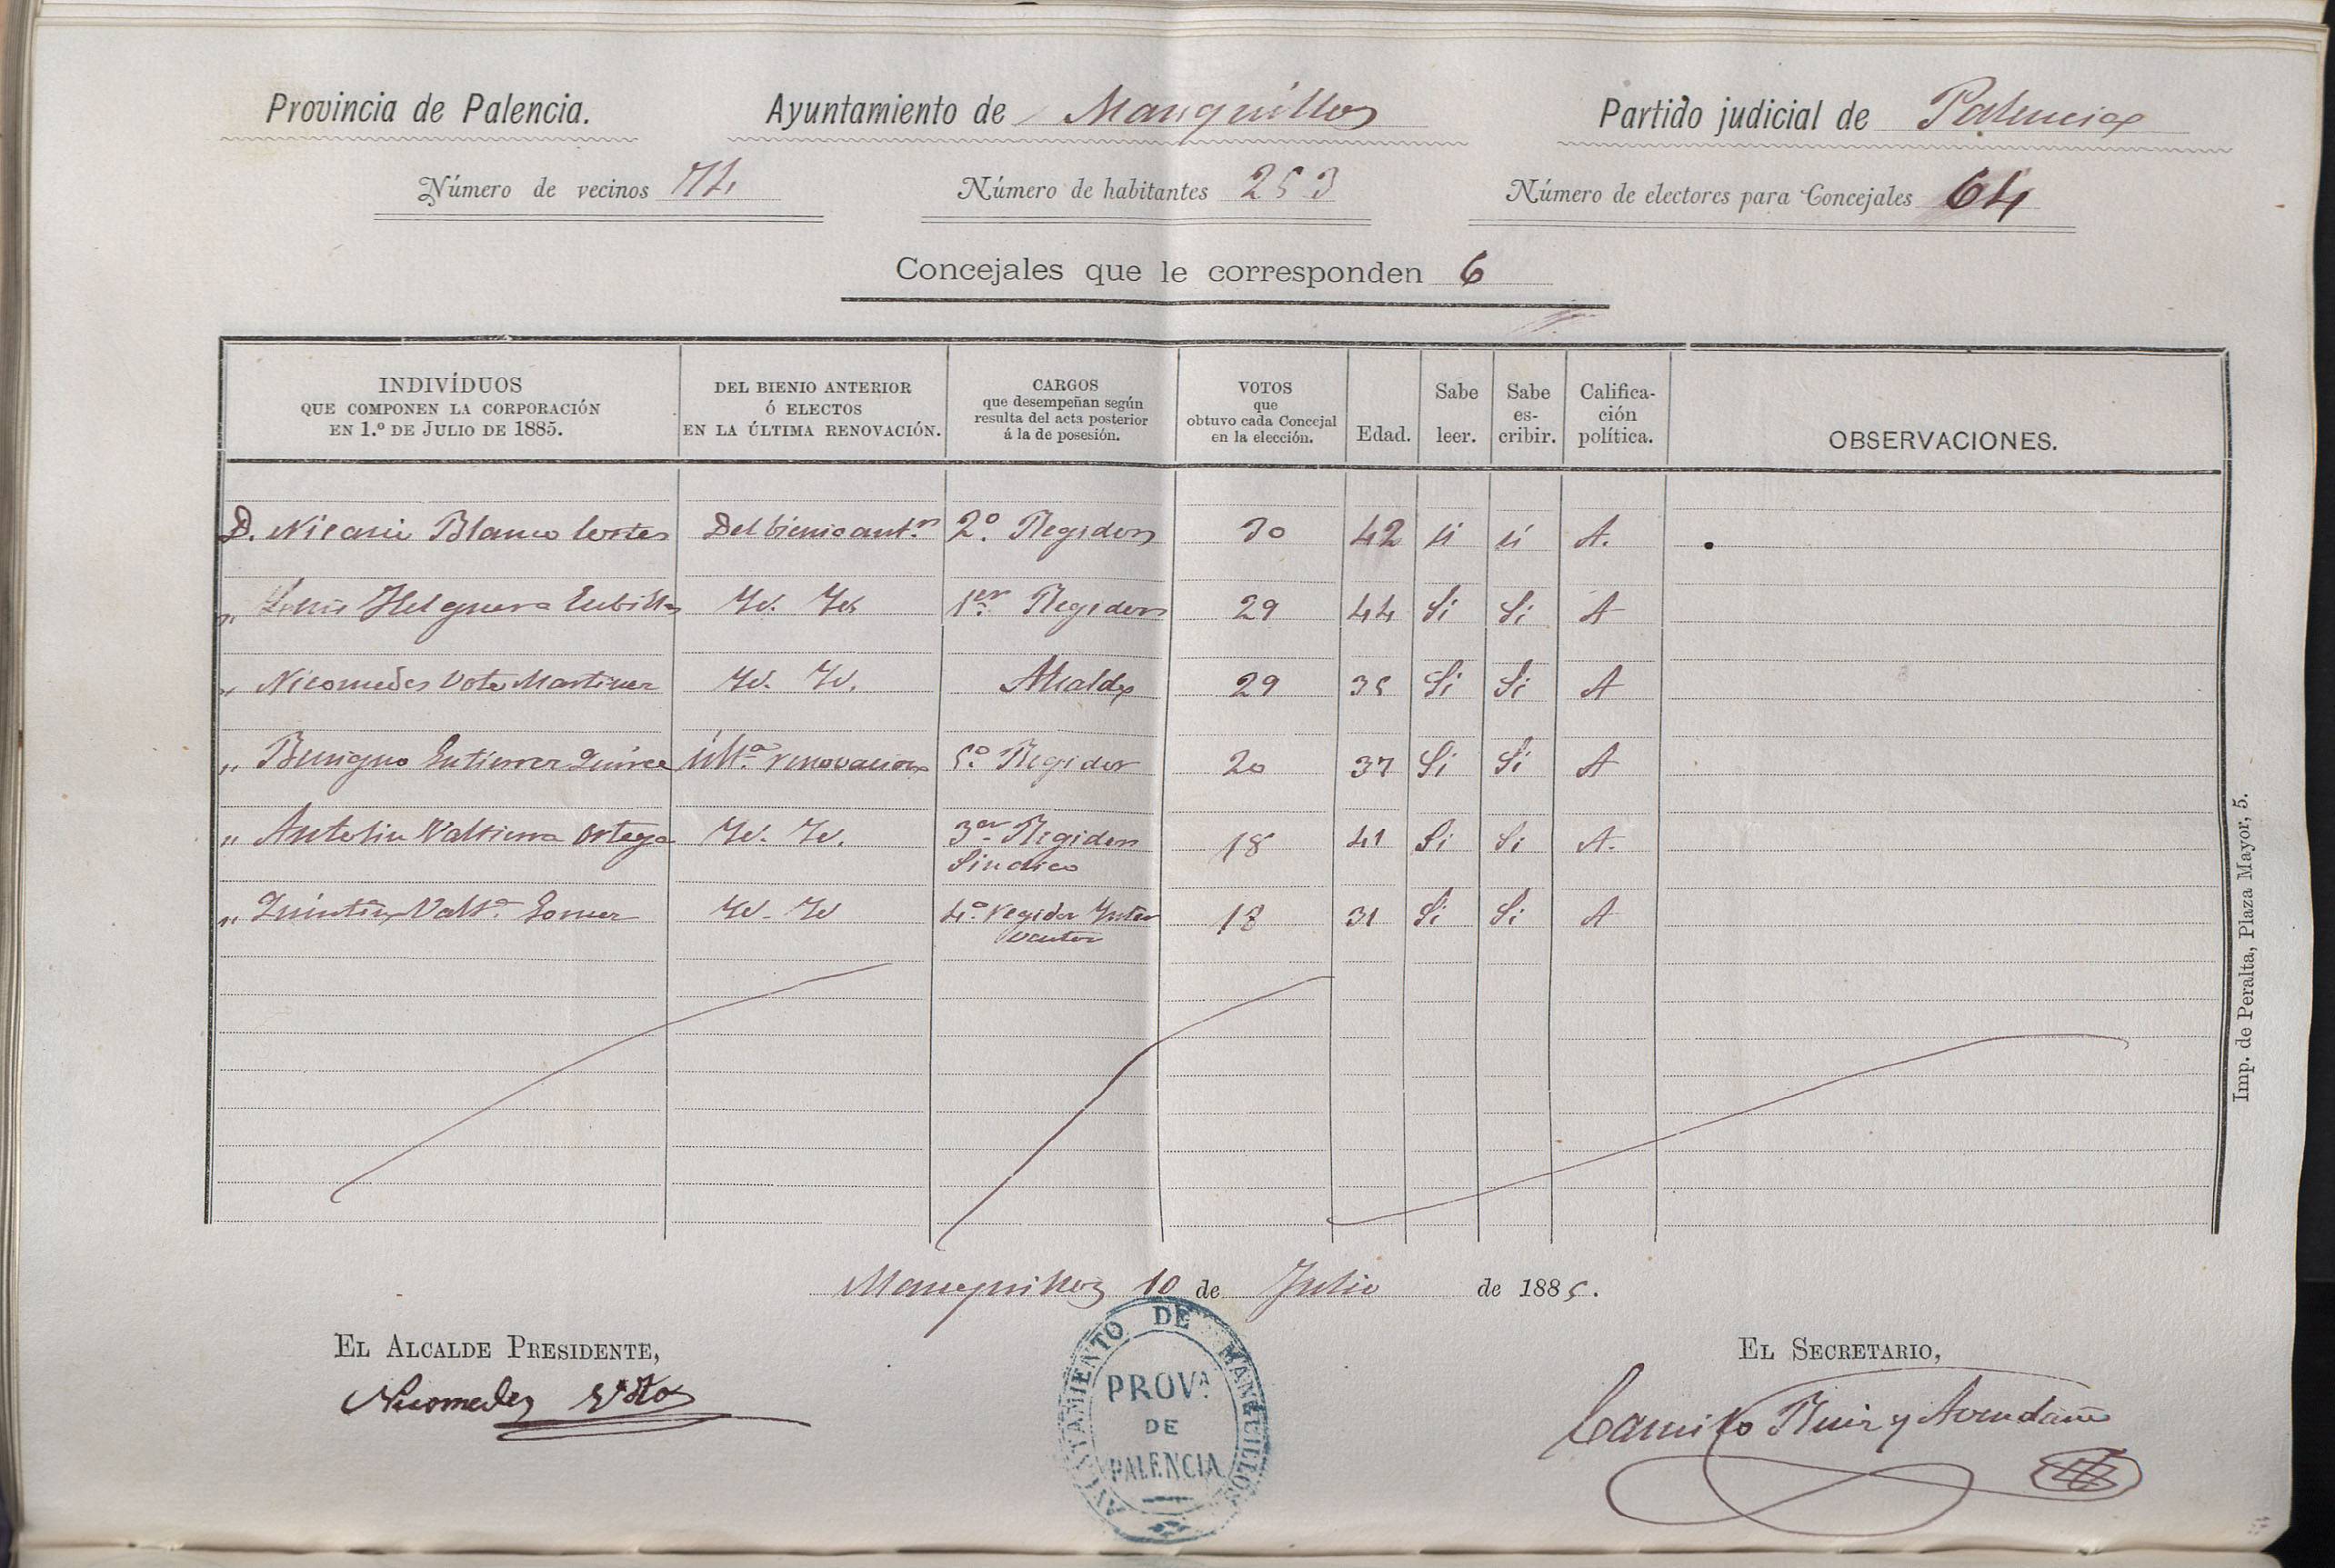 Provincia de Palencia. Ayuntamiento de Manquillos Partido judicial de Palencia
Número de vecinos 74 Número de habitantes 253 Número de electores para Concejales 64
Concejales que le corresponden 6
INDIVÍDUOS QUE COMPONEN LA CORPORACIÓN EN 1.º DE JULIO DE 1885. DEL BIENIO ANTERIOR Ó ELECTOS EN LA ÚLTIMA RENOVACIÓN. CARGOS que desempeñan según resulta del acta posterior á la de posesión. VOTOS que obtuvo cada Concejal en la elección. Edad. Sabe leer. Sabe es-cribir. Califica-ción política. OBSERVACIONES.
D. Nicasio Blanco Cortes Del bienio ant.or 2.º Regidor 30 42 si si A.
„ Helguera Cubillo Id. Id. 1.er Regidor 29 44 Si Si A
„ Nicomedes Voto Martinez Id. Id. Alcalde 29 35 Si Si A
„ Benigno Gutierrez Quirce últ.a renovacion 5.º Regidor 20 37 Si Si A
„ Antolin Valtierra Ortega Id. Id. 3.er Regidor 18 41 Si Si A.
Sindico
„ Quintin Valt.a Gomez Id. Id 4.º regidor Inter 18 31 Si Si A
ventor
Manquillos 10 de Julio de 1885.
EL ALCALDE PRESIDENTE, EL SECRETARIO,
Nicomedes Voto Camilo Ruiz y Avendaño
AYUNTAMIENTO DE MANQUILLOS
PROV.A
DE
PALENCIA
Imp. de Peralta, Plaza Mayor, 5.